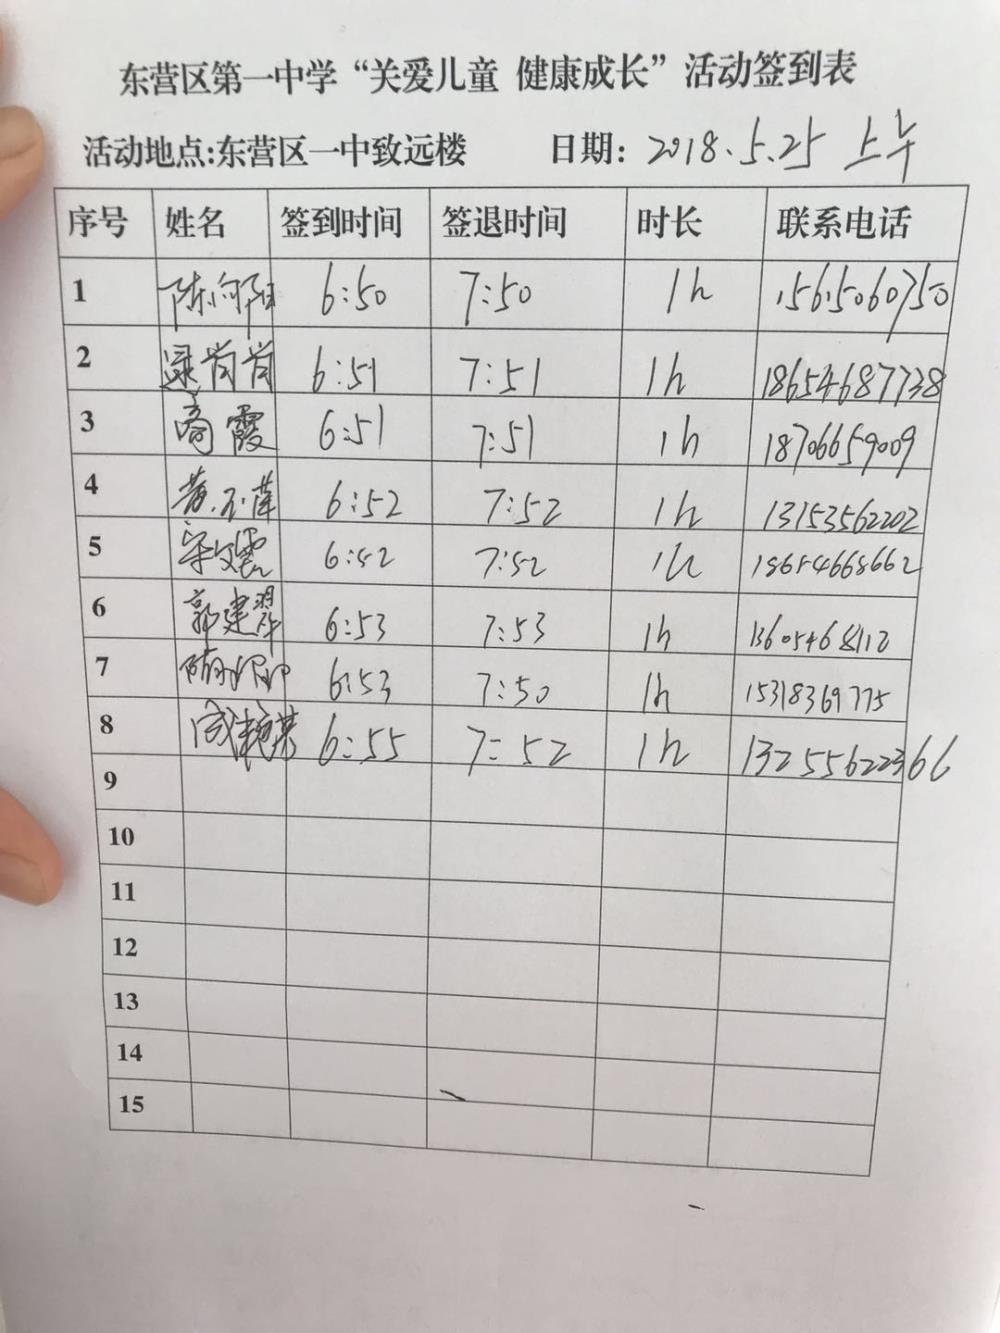 东营区第一中学“关爱儿童 健康成长”活动签到表
活动地点:东营区一中致远楼 日期: 2018.5.25 上午
序号 姓名 签到时间 签退时间 时长 联系电话
1 陈向阳 6:50 7:50 1h 15615060750
2 逯肖肖 6:51 7:51 1h 18654687738
3 商霞 6:51 7:51 1h 18706659009
4 6:52 7:52 1h 13153562202
5 6:52 7:52 1h 18654668662
6 郭建翠 6:53 7:53 1h 13605468112
7 6:53 7:50 1h 15318369775
8 6:55 7:52 1h 13255622366
9
10
11
12
13
14
15